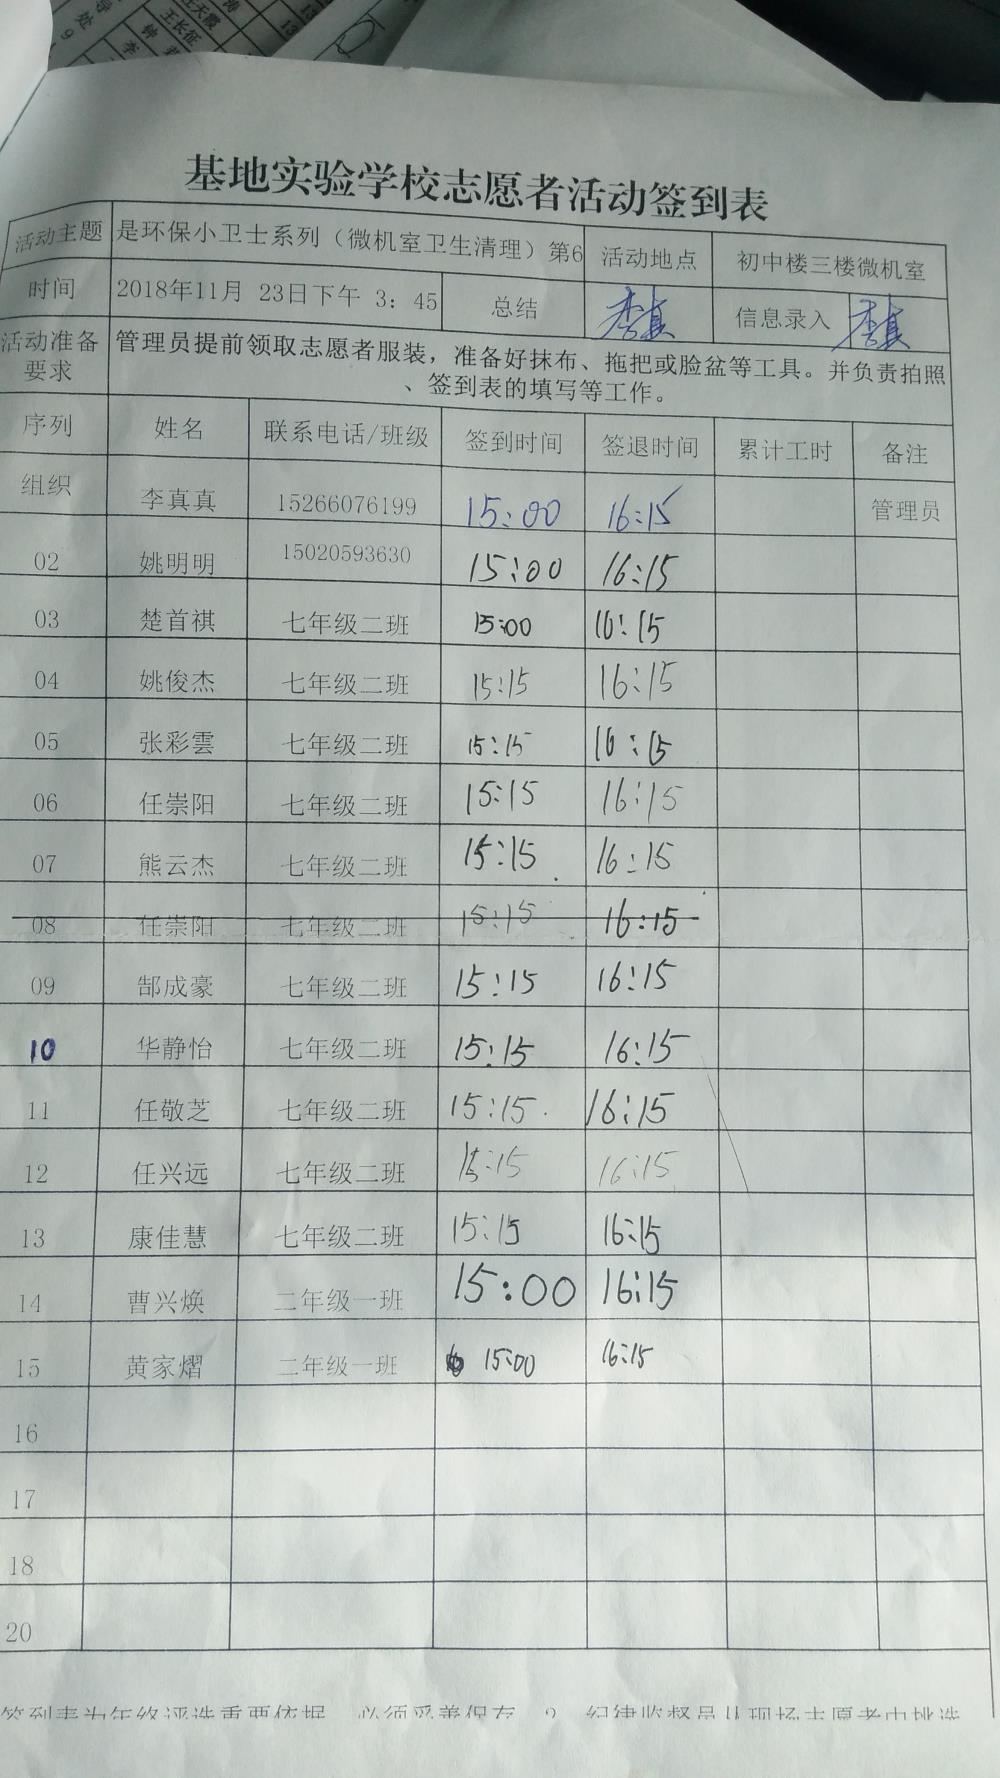 基地实验学校志愿者活动签到表
活动主题 是环保小卫士系列（微机室卫生清理）第6 活动地点 初中楼三楼微机室
时间 2018年11月 23日下午 3：45 总结 李真 信息录入 李真
活动准备要求 管理员提前领取志愿者服装，准备好抹布、拖把或脸盆等工具。并负责拍照
、签到表的填写等工作。
序列 姓名 联系电话/班级 签到时间 签退时间 累计工时 备注
组织 李真真 15266076199 15:00 16:15 管理员
02 姚明明 15020593630 15:00 16:15
03 楚首祺 七年级二班 15:00 16:15
04 姚俊杰 七年级二班 15:15 16:15
05 张彩雲 七年级二班 15:15 16:15
06 任崇阳 七年级二班 15:15 16:15
07 熊云杰 七年级二班 15:15 16:15
08 任崇阳 七年级二班 15:15 16:15
09 郜成豪 七年级二班 15:15 16:15
10 华静怡 七年级二班 15:15 16:15
11 任敬芝 七年级二班 15:15 16:15
12 任兴远 七年级二班 15:15 16:15
13 康佳慧 七年级二班 15:15 16:15
14 曹兴焕 二年级一班 15:00 16:15
15 黄家熠 二年级一班 15:00 16:15
16
17
18
20
签到表为年终评选重要依据 必须妥善保存 2 纪律监督员从现场志愿者中挑选